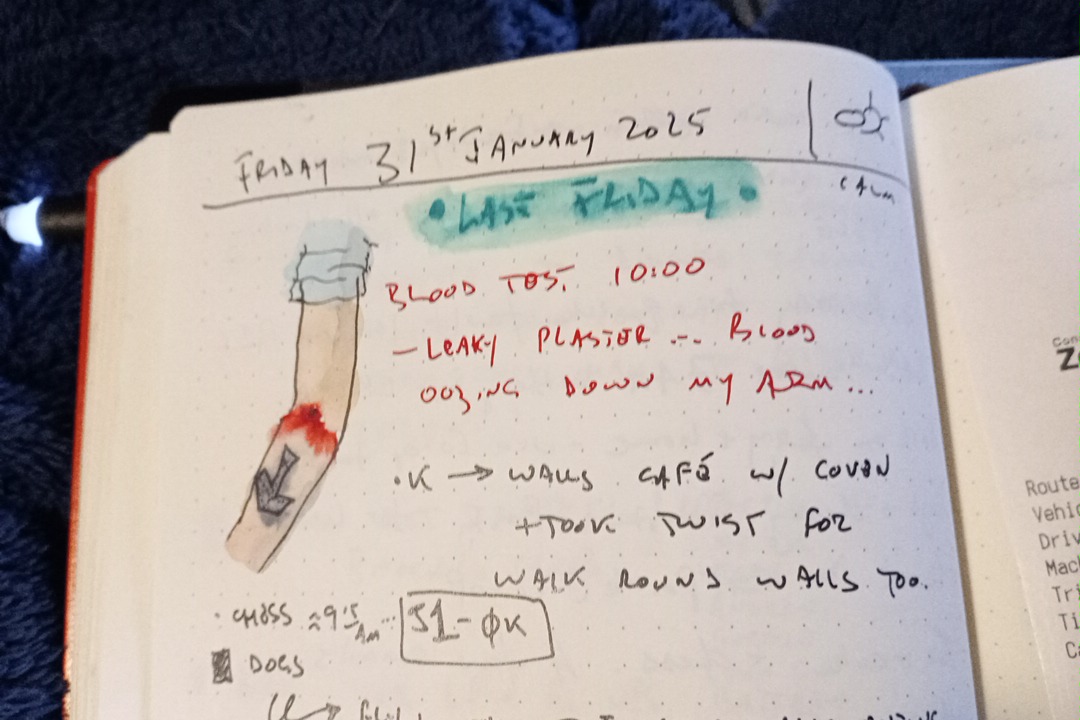 FRIDAY 31st JANUARY 2025
CALM
• LAST FRIDAY •
BLOOD TEST 10:00
- LEAKY PLASTER ... BLOOD
OOZING DOWN MY ARM...
• K → WALLS CAFÉ W/ COVEN
+ TOOK TWIST FOR
WALK ROUND WALLS TOO.
AM... 51-ØK
DOGS
Con
Z
Route
Vehic
Driv
Mach
Tri
Ti
Ca